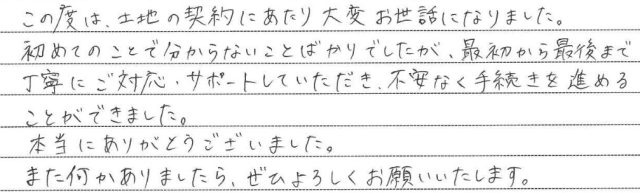 この度は、土地の契約にあたり大変お世話になりました。
初めてのことで分からないことばかりでしたが、最初から最後まで
丁寧にご対応・サポートしていただき、不安なく手続きを進める
ことができました。
本当にありがとうございました。
また何かありましたら、ぜひよろしくお願いいたします。